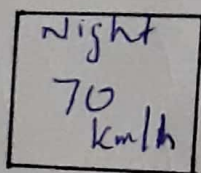 Night
70
km/h